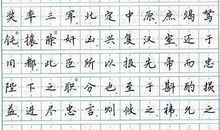 奖率三军,北定中原,庶竭驽
钝,攘除奸凶,兴复汉室,还于
旧都。此臣所以报先帝而忠
陛下之职分也。至于斟酌损
益,进尽忠言,则攸之、祎、允之